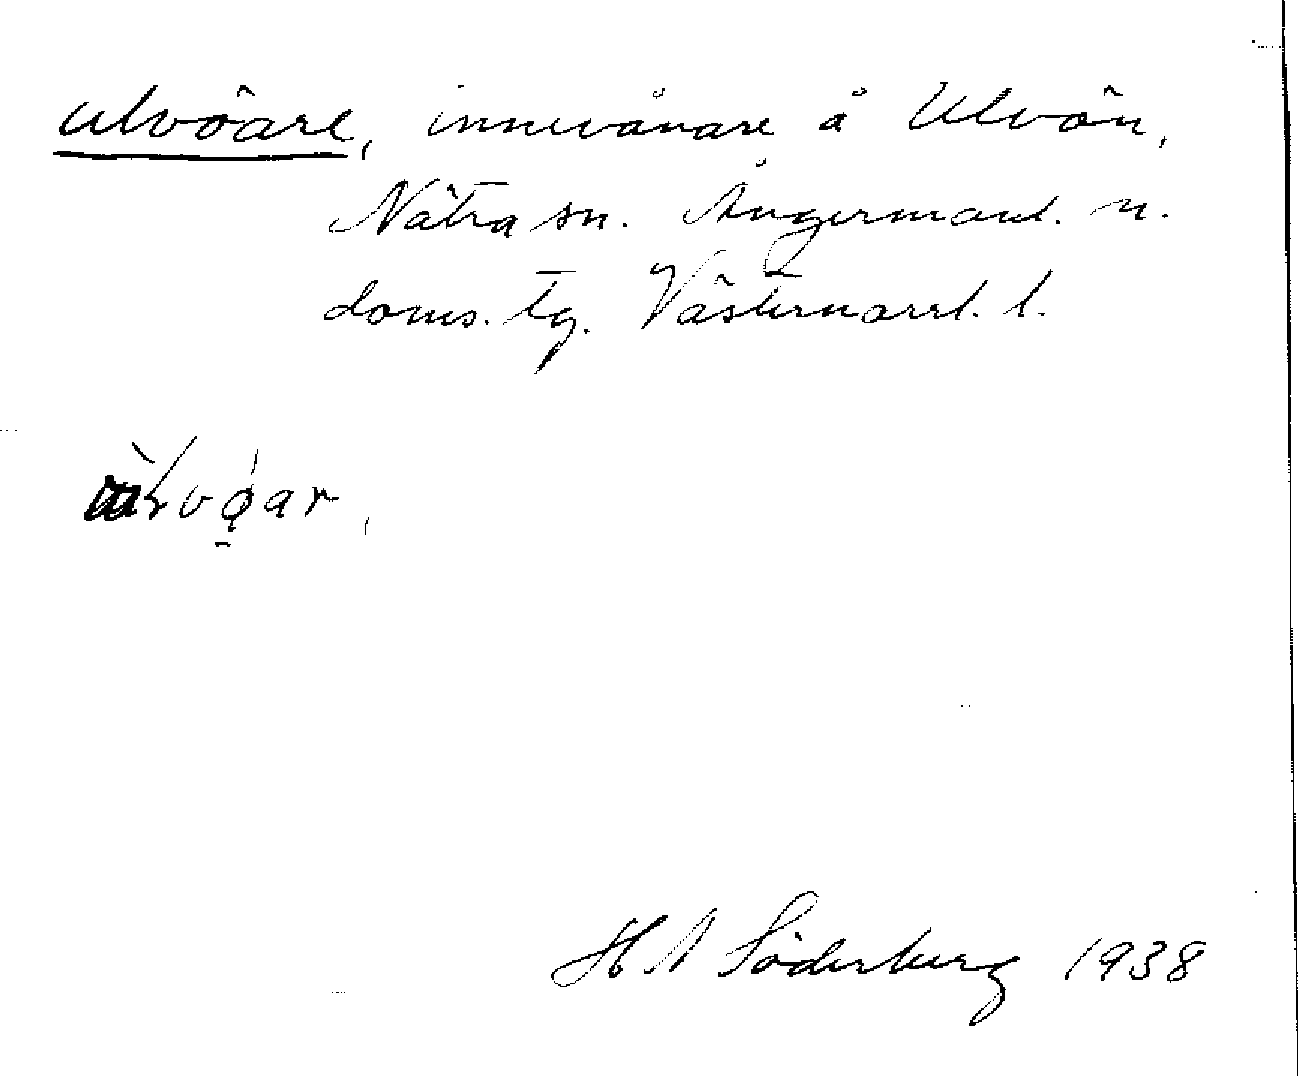 ulvöare, innevånare å Ulvön,
Nätra sn. Ångermanl. n.
doms. tg. Västernorrl. l.
H A Söderberg 1938